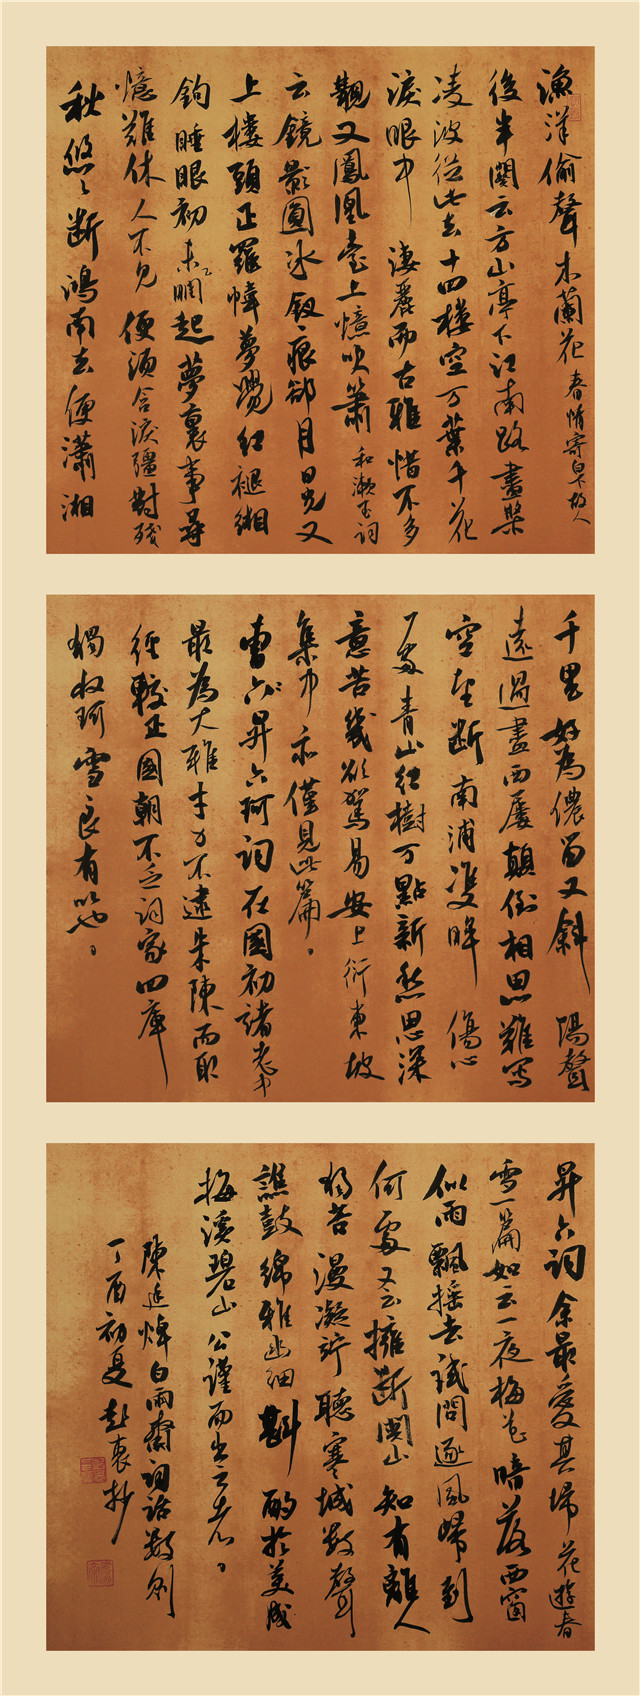 漁洋偷聲木蘭花春情寄白下故人
後半闋云方山亭下江南路畫槳
凌波從此去十四樓空万葉千花
淚眼中淒麗而古雅惜不多
觀又鳳凰臺上憶吹簫和漱玉詞
云鏡影圓冰釵痕卻月日光又
上樓頭正羅幃夢覺紅褪緗
鉤睡眼初未瞤起夢裏事尋
憶難休人不見便須含淚彊對殘
秋悠〻斷鴻南去便瀟湘
千里好為儂留又斜陽聲
遠過盡西廔顛倒相思難寫
空望斷南浦雙眸傷心
處青山紅樹万點新愁思深
意苦幾欲駕易安上衍東坡
集中亦僅見此篇。
曹六昇六珂詞在國初諸老中
最為大雅才力不逮朱陳而取
徑較正國朝不乏詞家四庫
獨收珂雪良有以也。
昇六詞余最愛其埽花游春
雪一篇如云一夜梅花暗落西窗
似雨飄搖去試問逐風歸到
何處又云擁斷関山知有離人
獨苦漫凝竚聽寒城數聲
譙鼓綿雅幽細斟酌於美成
梅溪碧山公謹而出之者。
陳廷焯白雨齋詞話數則
丁酉初夏赵衷抄